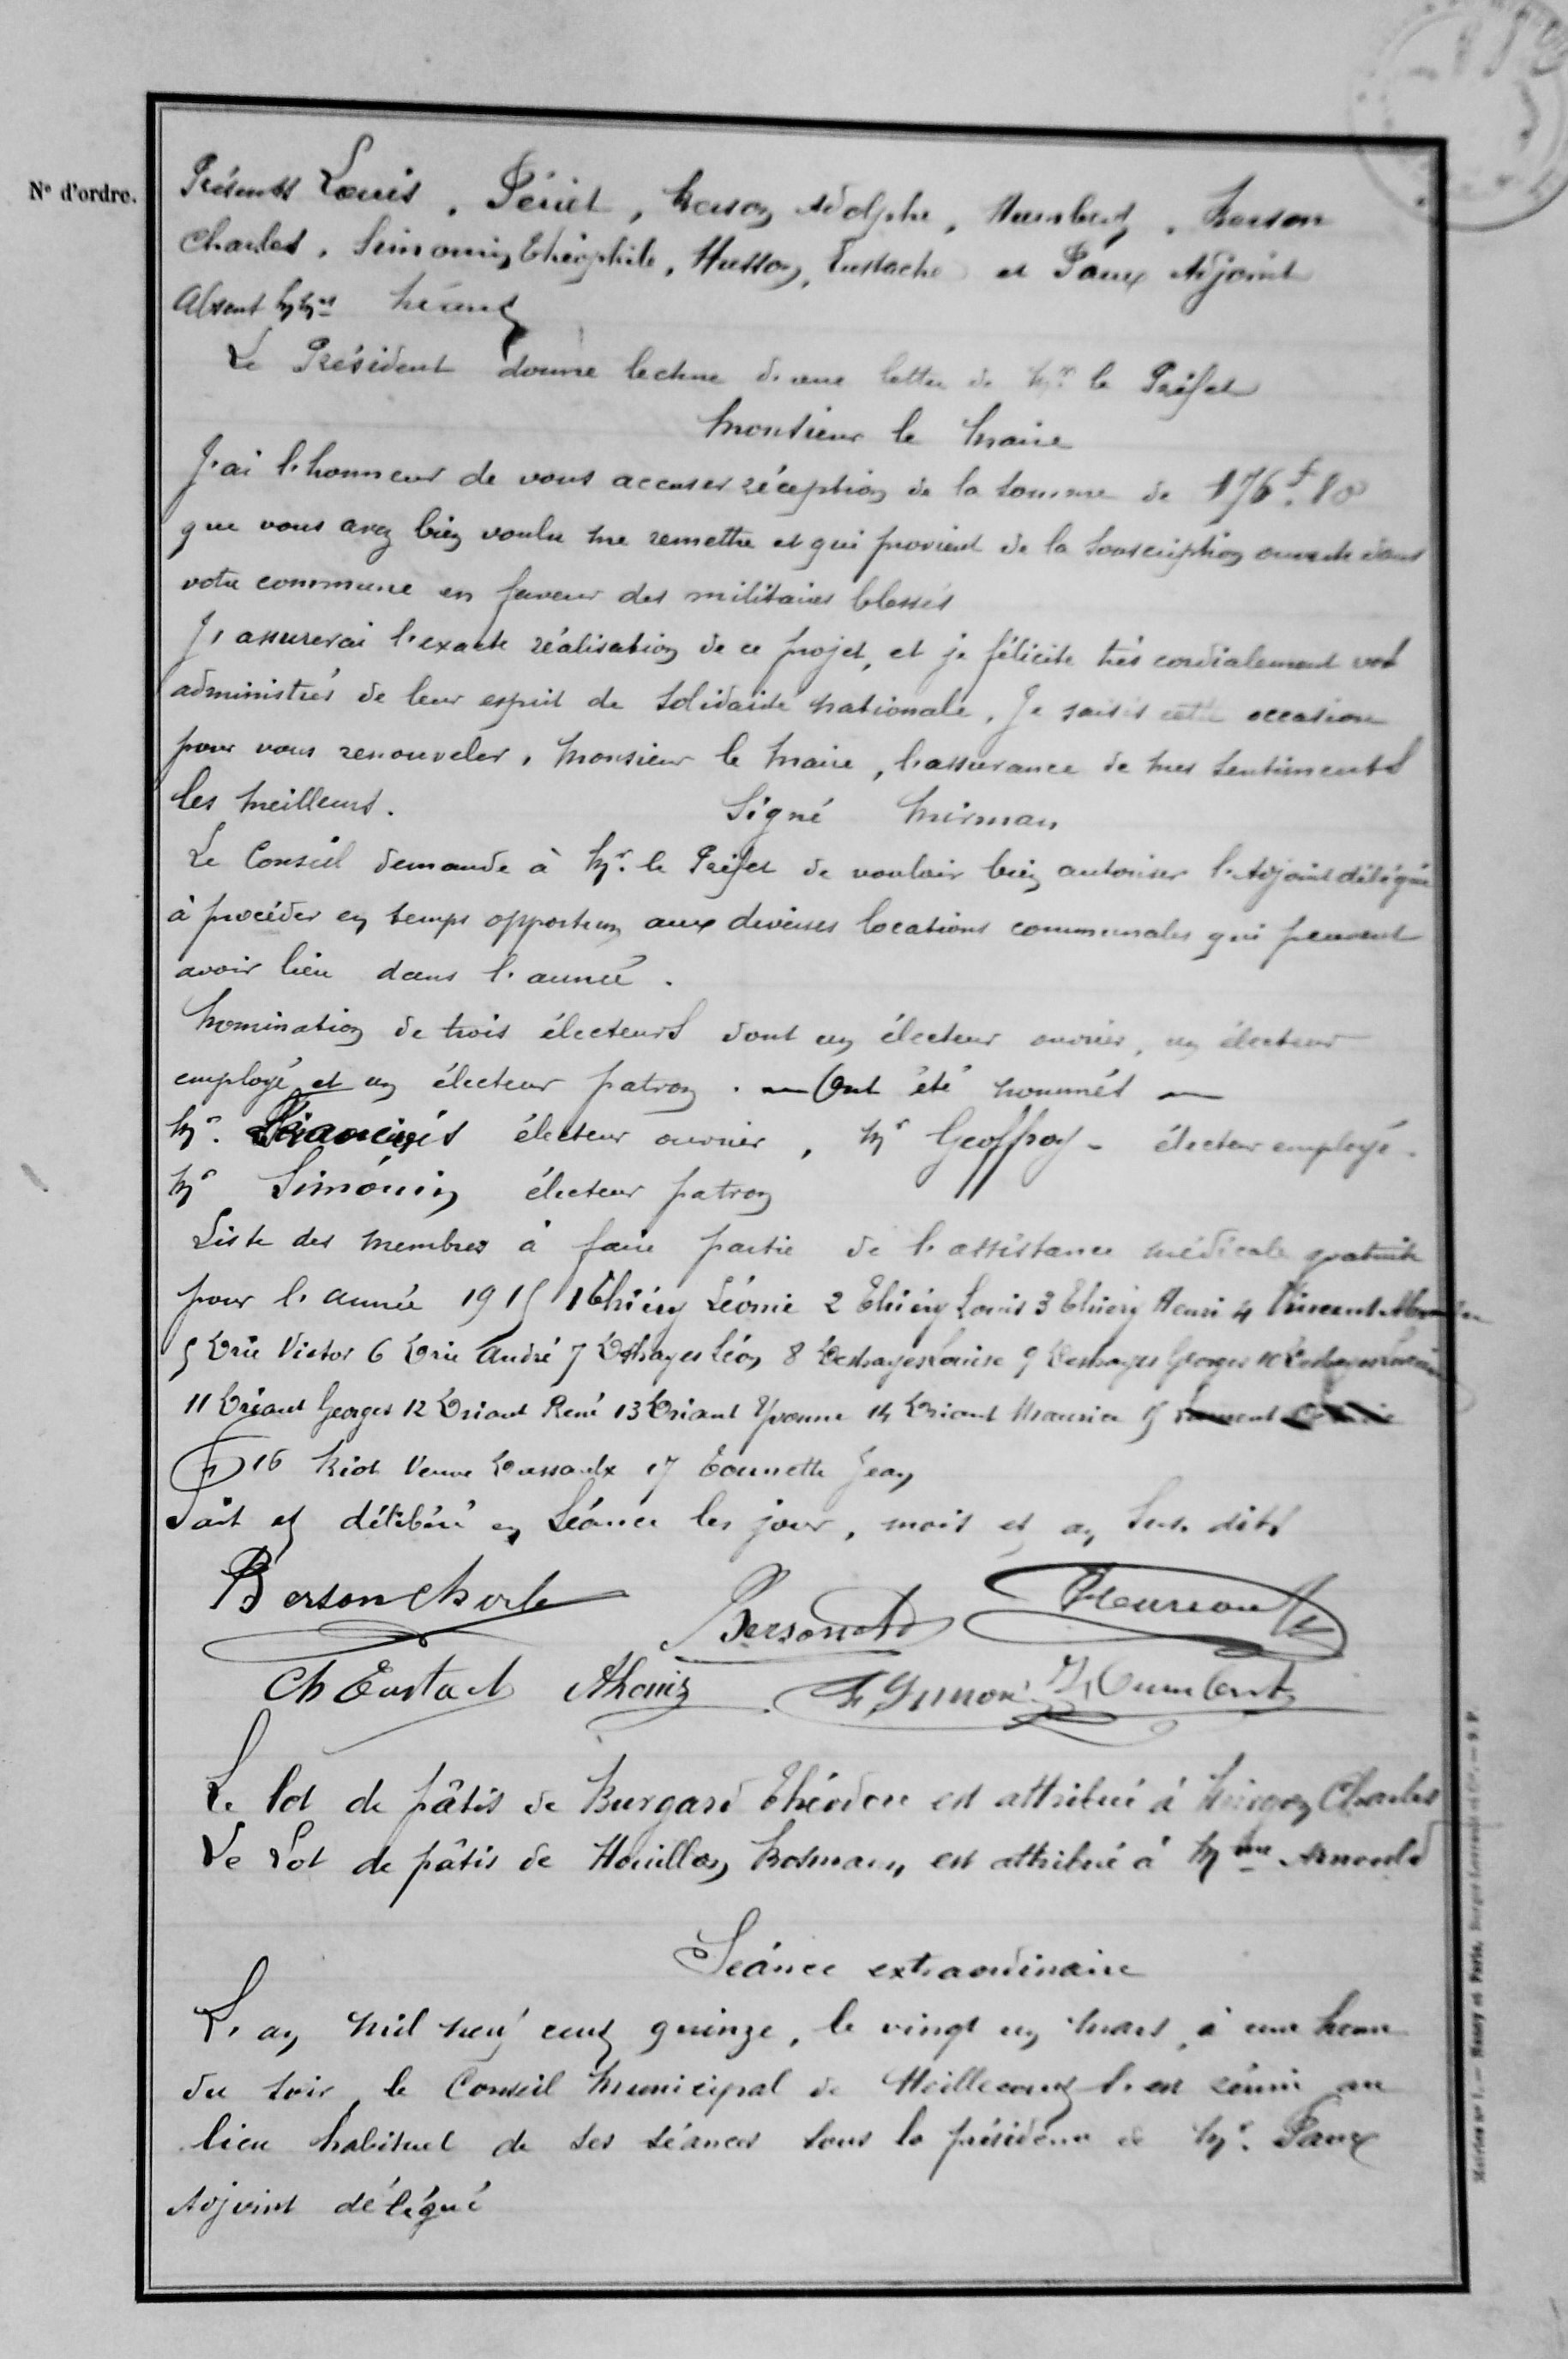 N° d'ordre.
Présents Louis, Périet, Berson Adolphe, Humbert, Berson
Charles, Simonin Théophile, Husson, Eustache et Paux Adjoint
Absent
Le Président donne lecture d'une lettre de Mr. le Préfet
Monsieur le Maire
J'ai l'honneur de vous accuser réception de la somme de 176f.10
que vous avez bien voulu me remettre et qui provient de la souscription ouverte dans
votre commune en faveur des militaires blessés
J'assurerai l'exacte réalisation de ce projet, et je félicite très cordialement vos
administrés de leur esprit de solidarité nationale. Je saisis cette occasion
pour vous renouveler, Monsieur le Maire, l'assurance de mes sentiments
les meilleurs. Signé Mirman
Le Conseil demande à Mr. le Préfet de vouloir bien autoriser l'Adjoint délégué
à procéder en temps opportun aux diverses locations communales qui peuvent
avoir lieu dans l'année.
Nomination de trois électeurs dont un électeur ouvrier, un électeur
employé et un électeur patron. — Ont été nommés —
Mr. François électeur ouvrier, Mr Geoffroy - électeur employé.
Mr Simonin électeur patron
Liste des membres à faire partie de l'assistance médicale gratuite
pour l'année 1915 1 Thiéry Léonie 2 Thiéry Louis 3 Thiéry Henri 4 Vincent
5 Victor 6 André 7 Deshayes Léon 8 Deshayes Louise 9 Deshayes Georges 10 Deshayes
11 Briant Georges 12 Briant René 13 Briant Yvonne 14 Briant Maurice 15
16 Veuve 17 Tounette Jean
Fait et délibéré en Séance les jour, mois et an sus. dits
Berson Charle
Berson Ad
Ch Eustach
Humbert
Le lot de pâtis de Burgard Théodore est attribué à Charles
Le Lot de pâtis de Houillon est attribué à Mme Arnould
Séance extraordinaire
L'an mil neuf cent quinze, le vingt un mars, à une heure
du soir, le Conseil Municipal de Moillecourt s'est réuni au
lieu habituel de ses séances sous la présidence de Mr. Paux
Adjoint délégué